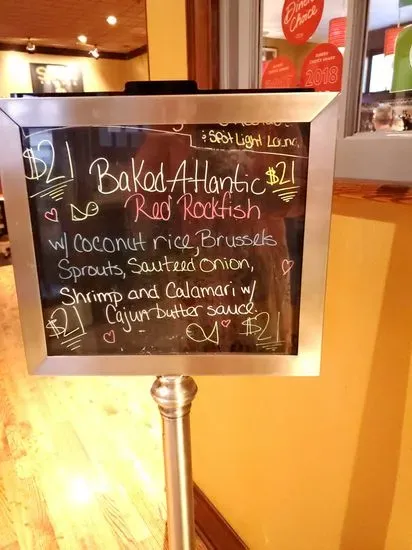 Diners'
Choice
2018
& Spot Light Loung
$21 Baked Atlantic $21
Red Rockfish
w/ coconut rice, Brussels
Sprouts, Sauteed Onion,
Shrimp and Calamari w/
$21 Cajun butter sauce $21